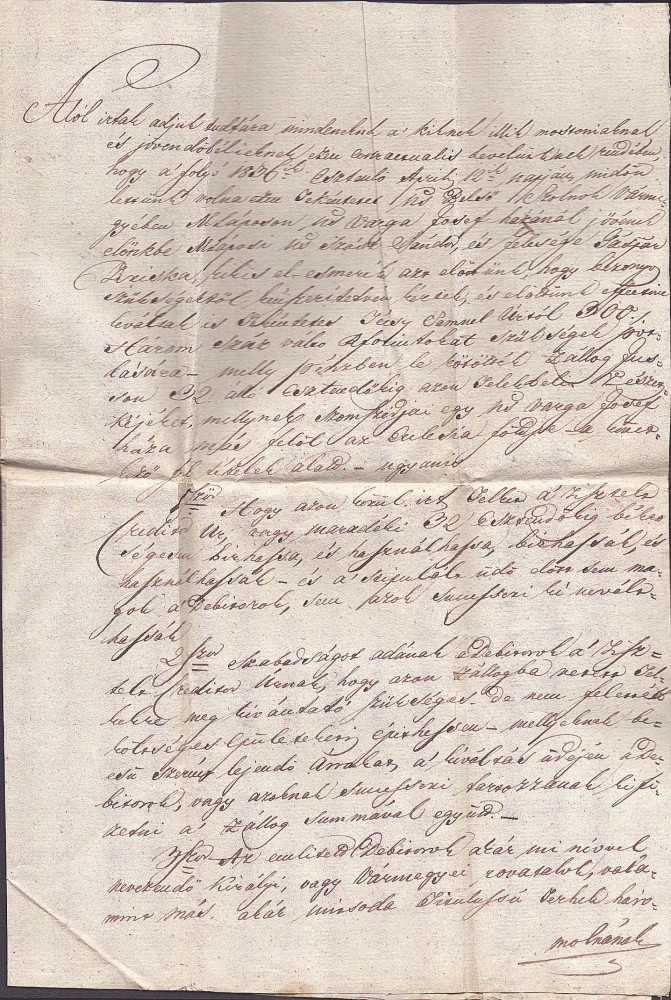 Alól irtak adjuk tudtára mindeneknek a' kiknek illik mostaniaknak
és jövendőbélieknek ezen contractualis Levelünknek rendiben
hogy a folyó 1836ik Esztendő April 10ik napján, midőn
lettünk volna ezen Tekintetes Ns Belső Szolnok Várme-
gyében M.Láposon Ns Varga Josef házánál jövének
előnkbe M.láposi Ns Szőcs Sándor, és felesége
Kriska, kik is el-esmerik azt előttünk, hogy bizonyo
szükségektöl kinszerittetvén kértek, és előttünk effective
leváltak is Tekintetes Samuel Úrtól 300f
Három száz váltó Rforintokat szükségek pót-
lására - melly pénzben le kötötték Zállog jus-
son 32 álló Esztendőkig azon Telekbeli Részeg-
kéjéket, mellynek szomszédjai egy Ns Varga Josef
háza más felöl az Eclesia földje -
alatt. - ugyanis
1ször Hogy azon közül irt Telket a Tisztelt
Creditor Ur, vagy maradéki 32 Esztendőkig békes-
ségesen birhassa, és használhassa, birhassák, és
használhassák - és a' stipulált üdő előtt sem ma-
gok a' Debitorok, sem azok Successori ki nevált-
hassák
2szor Szabadságot adának a Debitorok a' Tisz-
telt Creditor Urnak, hogy azon Zállogba vetett Tel-
kekre meg kivántató szükséges - de nem felettébb
költséges Épületeket épithessen - mellyeknek be-
csü szerént lejendő árrokat, a' kiváltás üdején a De-
bitorok, vagy azoknak Successori tartozzanak kifi-
zetni a' Zállog summával együtt. -
3szor Az emlitett Debitorok akár mi névvel
nevezendő Királyi, vagy Vármegyei rovatalok, vala-
mint más akár minsoda Titulussú Terhek háro-
molnának